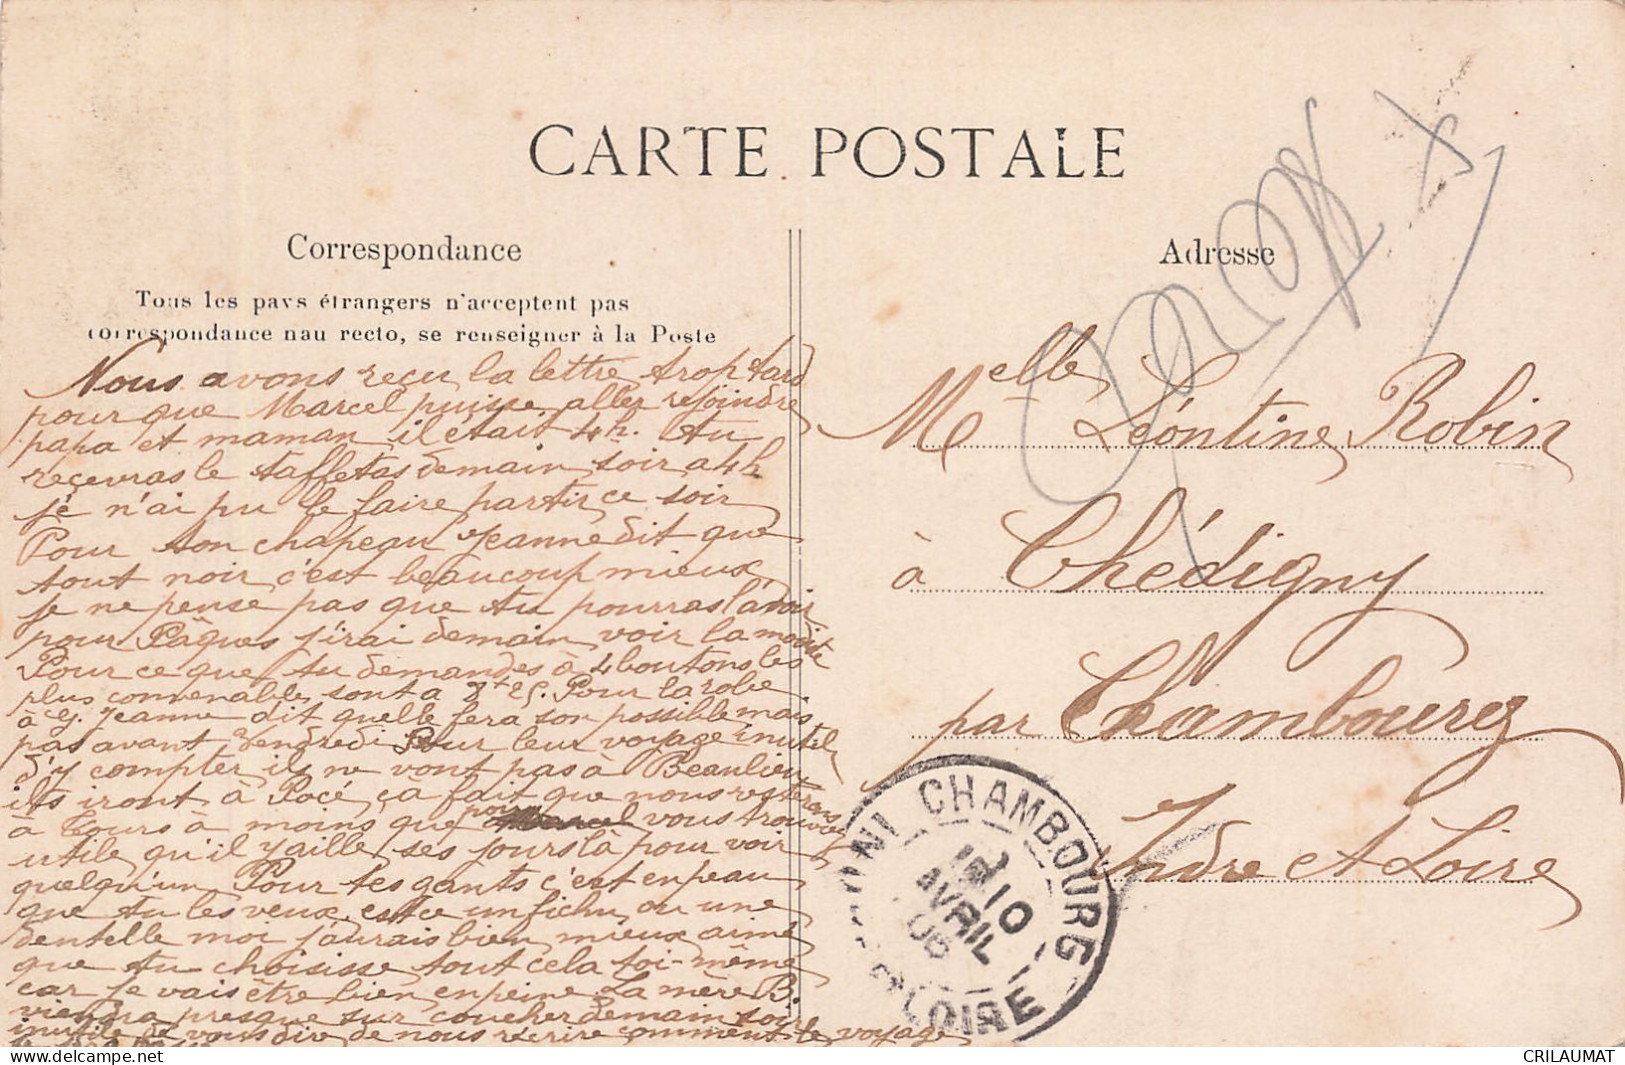 CARTE POSTALE
Correspondance
Tous les pays étrangers n'acceptent pas
correspondance nau recto, se renseigner à la Poste
Adresse
Nous avons reçu la lettre trop tard
pour que Marcel puisse aller rejoindre
papa et maman il était 4h. Tu
reçevras le taffetas demain soir a 4h
je n'ai pu le faire partir ce soir
Pour ton chapeau Jeanne dit que
tout noir c'est beaucoup mieux
je ne pense pas que tu pourras l'avoir
pour Pâques j'irai demain voir la modiste
Pour ce que tu demandes à 4 boutons les
plus convenable sont a Pour la robe
à Jeanne dit quelle fera son possible mais
pas avant Vendredi Pour leur voyage inutile
d'y compter ils ne vont pas à Beaulieu
ils iront à Pocé, ça fait que nous resterons
à Tours à moins que pour Marcel vous trouviez
utile qu'il y aille ses jours là pour voir
quelqu'un Pour tes gants c'est en peau
que tu les veux, est ce un fichu ou une
dentelle moi j'aurais bien mieux aimé
que tu choisisse tout cela toi-même
car je vais être bien en peine La mère B.
viendra presque sur coucher demain soir
inutile de vous dire de nous récrire comment le voyage
Melle Léontine Robin
à Chédigny
par Chambourg
Indre et Loire
CHAMBOURG
10
AVRIL
06
LOIRE
CRILAUMAT